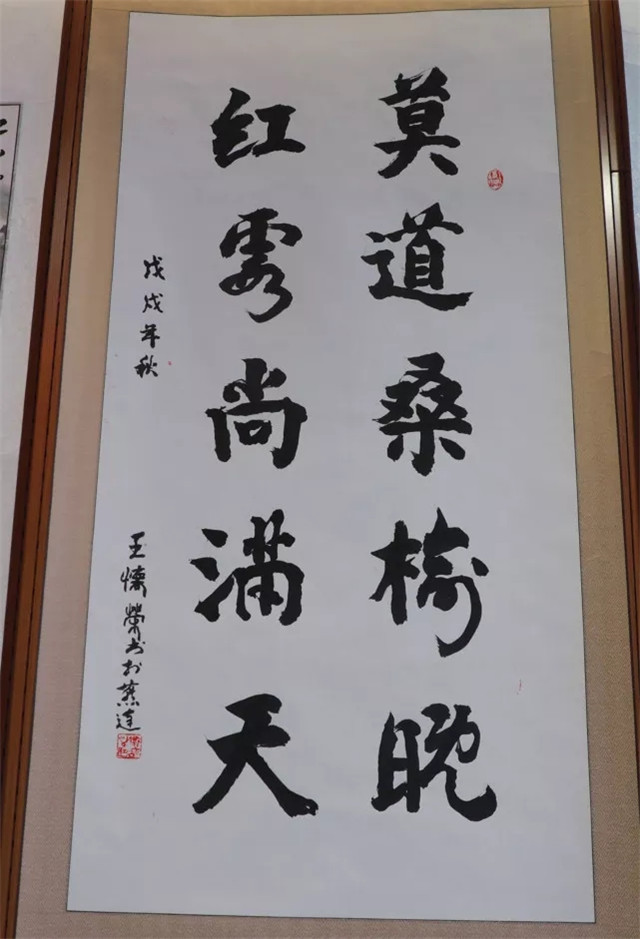 莫道桑榆晚
红霞尚满天
戊戌年秋
王懷榮书於燕達